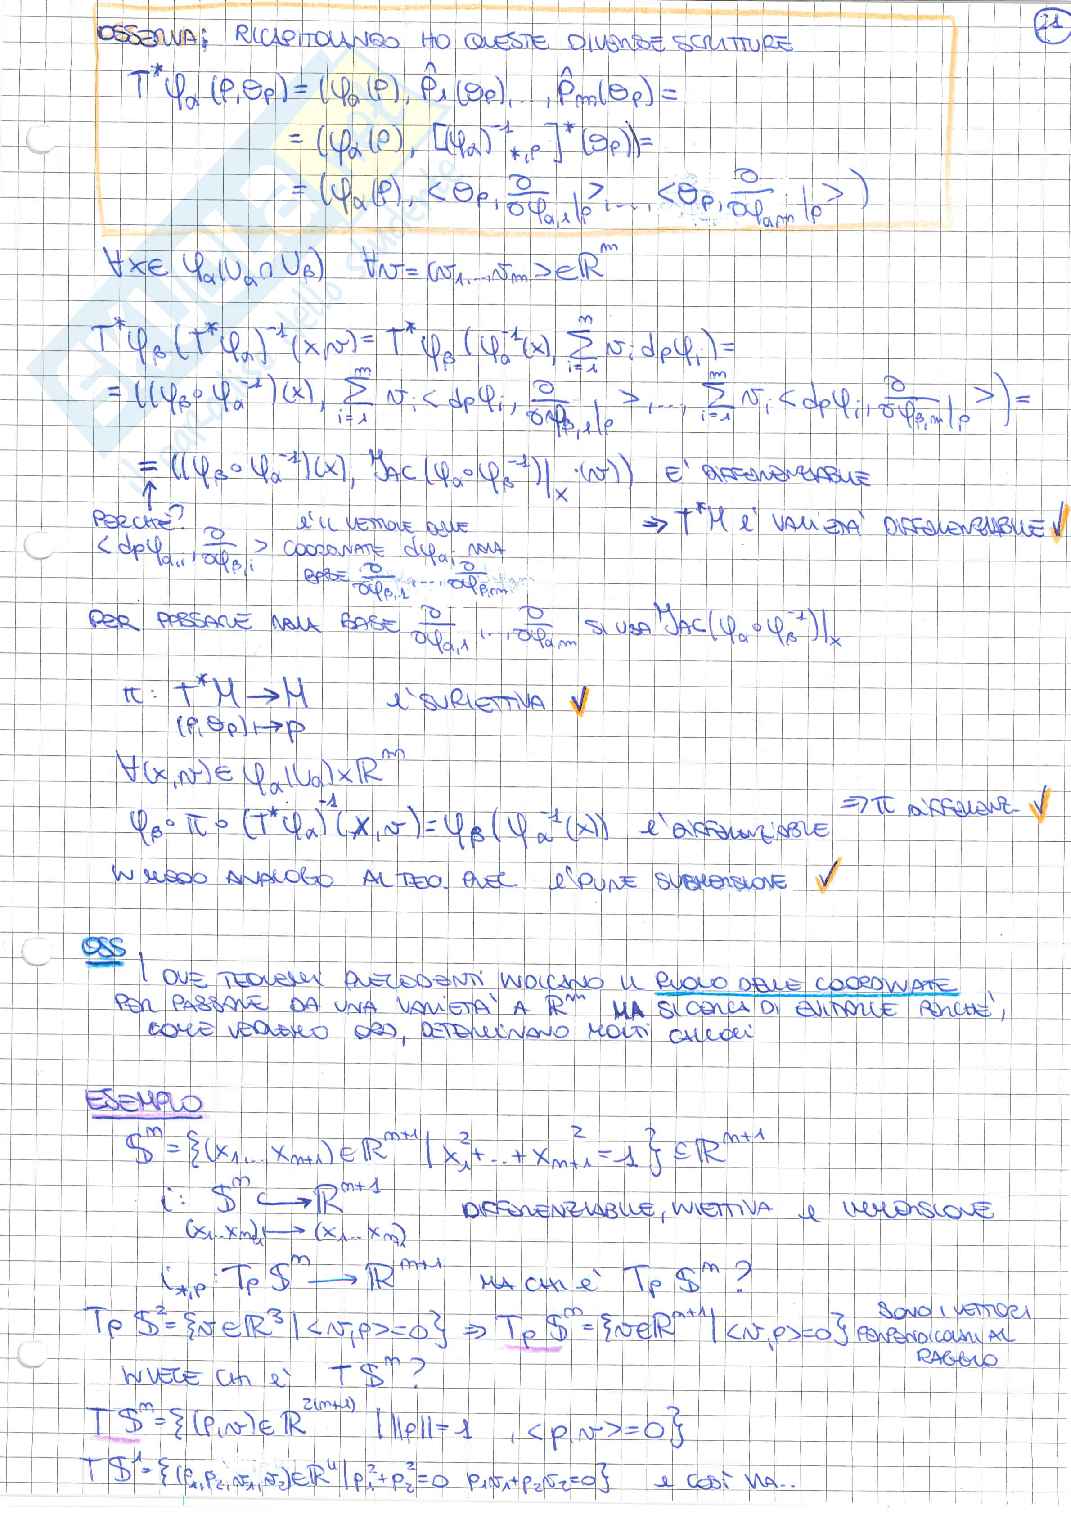 21
OSSERVA: RICAPITOLANDO HO QUESTE DIVERSE SCRITTURE
T*φα(p,θp) = (φα(p), p̂1(θp),..., p̂m(θp) =
= (φα(p), [(φα)⁻¹*,p]*(θp)) =
= (φα(p), <θp, ∂/∂φα,1|p>,..., <θp, ∂/∂φα,m|p>)
∀x∈ φα(Uα∩Uβ) ∀v=(v1,...,vm)∈ℝᵐ
T*φβ(T*φα)⁻¹(x,v) = T*φβ(φα⁻¹(x), Σᵢ₌₁ᵐ vi dpφi) =
= ((φβ∘φα⁻¹)(x), Σᵢ₌₁ᵐ vi<dpφi, ∂/∂φβ,1|p>,..., Σᵢ₌₁ᵐ vi<dpφi, ∂/∂φβ,m|p>) =
= ((φβ∘φα⁻¹)(x), JAC(φα∘φβ⁻¹)|x·(v)) E' DIFFERENZIABILE
PERCHÉ? è IL VETTORE DELLE ⇒ T*M è VARIETÀ DIFFERENZIABILE ✓
<dpφα,i, ∂/∂φβ,i> COORDINATE dφαi NELLA
BASE ∂/∂φβ,1,...,∂/∂φβ,m
PER PASSARE NELLA BASE ∂/∂φα,1,...,∂/∂φα,m SI USA JAC(φα∘φβ⁻¹)|x
π: T*M → M è SURIETTIVA ✓
(p,θp) ↦ p
∀(x,v)∈ φα(Uα)×ℝᵐ
φβ∘π∘(T*φα)⁻¹(x,v) = φβ(φα⁻¹(x)) è DIFFERENZIABILE ⇒ π DIFFERENZ. ✓
IN MODO ANALOGO AL TEO. PREC. è PURE SUBMERSIONE ✓
OSS
I DUE TEOREMI PRECEDENTI INDICANO IL RUOLO DELLE COORDINATE
PER PASSARE DA UNA VARIETÀ A ℝᵐ MA SI CERCA DI EVITARLE PERCHÉ,
COME VEDREMO ORA, DETERMINANO MOLTI CALCOLI
ESEMPIO
𝕊ᵐ = {(x1...xm+1)∈ℝᵐ⁺¹ | x1²+...+xm+1² = 1} ⊆ ℝᵐ⁺¹
i: 𝕊ᵐ ↪ ℝᵐ⁺¹ DIFFERENZIABILE, INIETTIVA e IMMERSIONE
(x1...xm+1) ↦ (x1...xm+1)
i*,p: Tp𝕊ᵐ → ℝᵐ⁺¹ MA CHI è Tp𝕊ᵐ?
Tp𝕊² = {v∈ℝ³ | <v,p>=0} ⇒ Tp𝕊ᵐ = {v∈ℝᵐ⁺¹ | <v,p>=0} SONO I VETTORI
PERPENDICOLARI AL
RAGGIO
INVECE CHI è T𝕊ᵐ?
T𝕊ᵐ = {(p,v)∈ℝ²⁽ᵐ⁺¹⁾ | ||p||=1, <p,v>=0}
T𝕊¹ = {(p1,p2,v1,v2)∈ℝ⁴ | p1²+p2²=0 p1v1+p2v2=0} e COSÌ VIA..